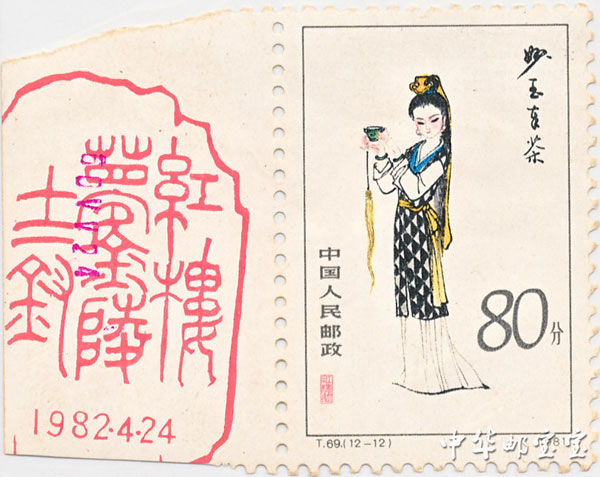 紅樓
夢金陵
十二釵
1982.4.24
妙玉奉茶
中国人民邮政
80分
T.69.(12-12)
中华邮宝宝